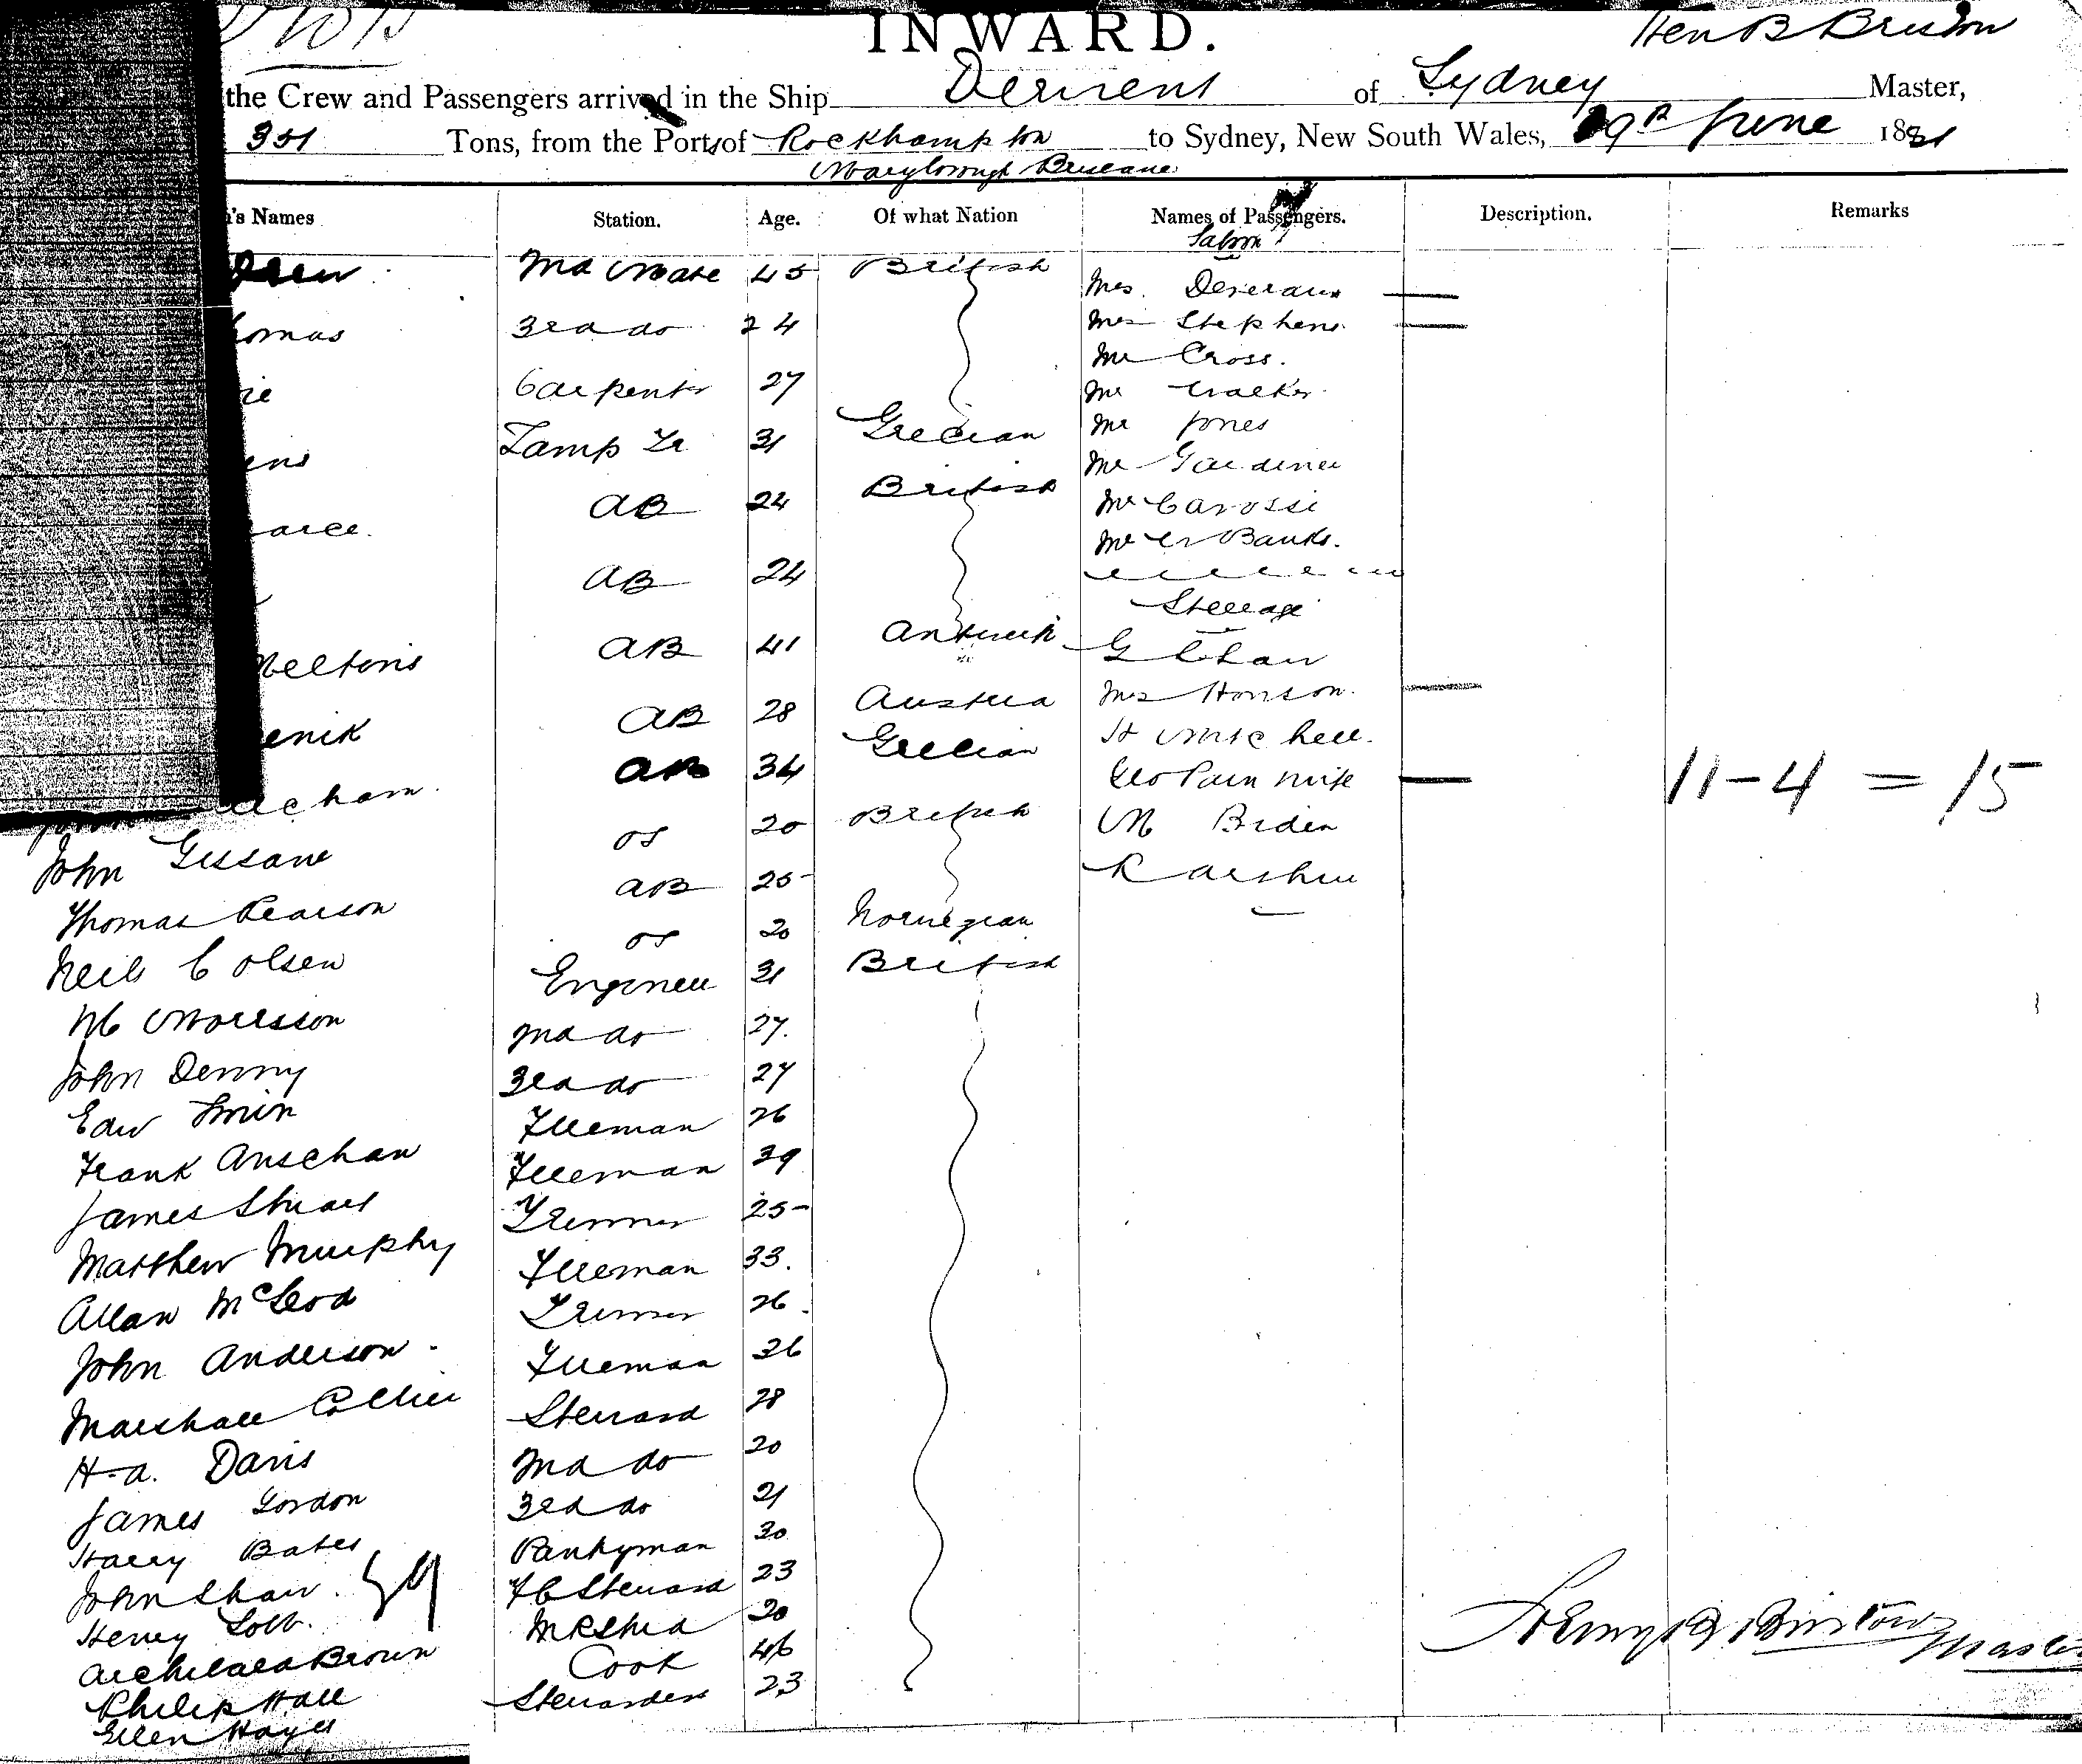 INWARD.
Hen B Bruton
the Crew and Passengers arrived in the Ship Derwent of Sydney Master,
351 Tons, from the Port of Rockhampton to Sydney, New South Wales, 29th June 1881
Maryborough Brisbane
's Names Station. Age. Of what Nation Names of Passengers. Description. Remarks
Saloon
Drew 2nd Mate 45 British
Mrs. Devereaux
homas 3rd do 24
Mrs Stephens
Mr Cross.
ie Carpenter 27
Mr Walker
Mr Jones
ens Lamp Tr 31 Grecian
Mr Gardiner
earce. AB 24 British
Mr Carossi
Mr W Banks.
AB 24
Steerage
Meltons AB 41 Antwerp
G Chaw
enik AB 28 Austria
Mrs Honson.
AB 34 Grecian
H Mitchell.
Geo Pain wife
11-4 = 15
acham OS 20 British
M Briden
John Gissane AB 25
R
Thomas Pearson OS 20 Norwegian
Neils C Olsen Engineer 31 British
M Morrisson 2nd do 27.
John Denny 3rd do 27
Edw Fireman 26
Frank Anschaw Fireman 39
James Stuart Trimmer 25
Matthew Murphy Fireman 33.
Allan McLeod Trimmer 26.
John Anderson Fireman 36
Marshall Collier Steward 28
H. A. Davis 2nd do 20
James Gordon 3rd do 21
Harry Bates Pantryman 30
John Shaw. 39 F C Steward 23
Henry Lobb. M R Stwd 20
Archibald Brown Cook 46
Philip Hall Stewardess 23
Ellen Hayes
Henry B Bruton Master